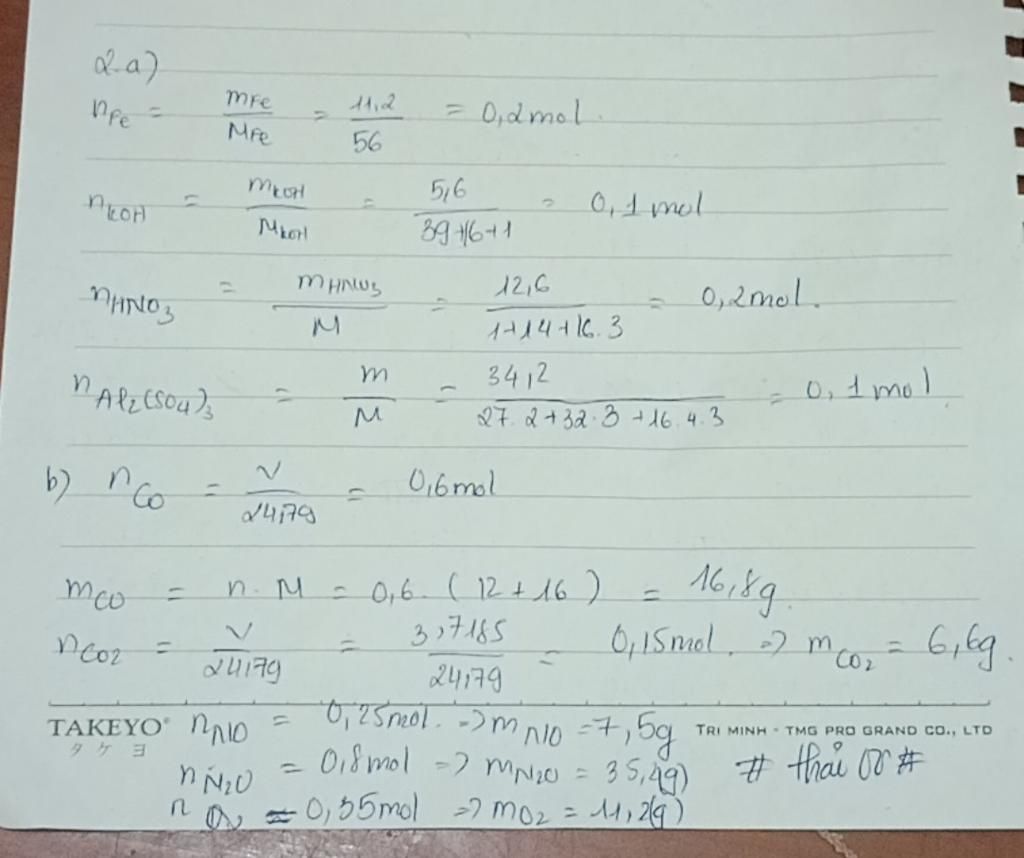 2.a)
nFe = mFe/MFe = 11,2/56 = 0,2mol.
nKOH = mKOH/MKOH = 5,6/39+16+1 = 0,1 mol
nHNO3 = mHNO3/M = 12,6/1+14+16.3 = 0,2mol.
nAl2(SO4)3 = m/M = 34,2/27.2+32.3+16.4.3 = 0,1 mol
b) nCO = V/24,79 = 0,6mol
mCO = n.M = 0,6.(12+16) = 16,8g.
nCO2 = V/24,79 = 3,7185/24,79 = 0,15mol. => mCO2 = 6,6g.
TAKEYO® nNO = 0,25mol. => mNO = 7,5g TRI MINH - TMG PRO GRAND CO., LTD
タケヨ
nN2O = 0,8mol => mN2O = 35,4g) # thái #
n = 0,35mol => mO2 = 11,2(g)